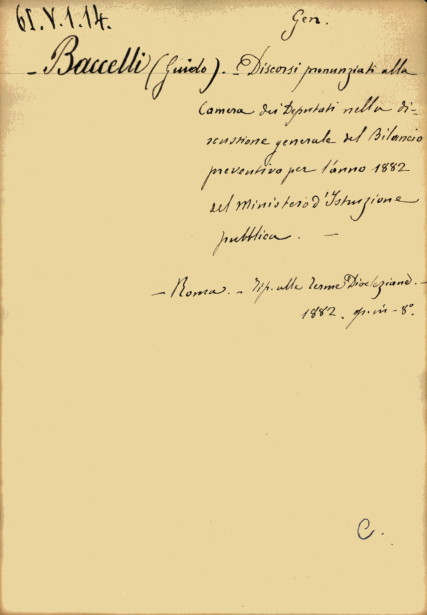 61.V.1.14.
Gen.
- Baccelli (Guido). - Discorsi pronunziati alla
Camera dei Deputati nella di-
scussione generale del Bilancio
preventivo per l'anno 1882
del Ministero d'Istruzione
pubblica. -
- Roma. - Tip. alle Terme Diocleziane. -
1882. op. in-8°.
C.